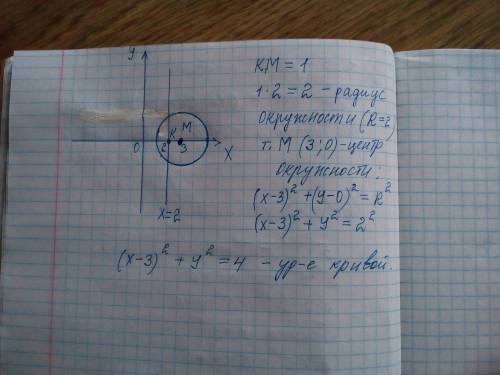 y
KM = 1
1·2 = 2 – радиус
окружности (R=2)
т. M (3;0) – центр
окружности:
(x-3)² + (y-0)² = R²
(x-3)² + y² = 2²
K M
0 2 3 X
x=2
(x-3)² + y² = 4 – ур-е кривой.